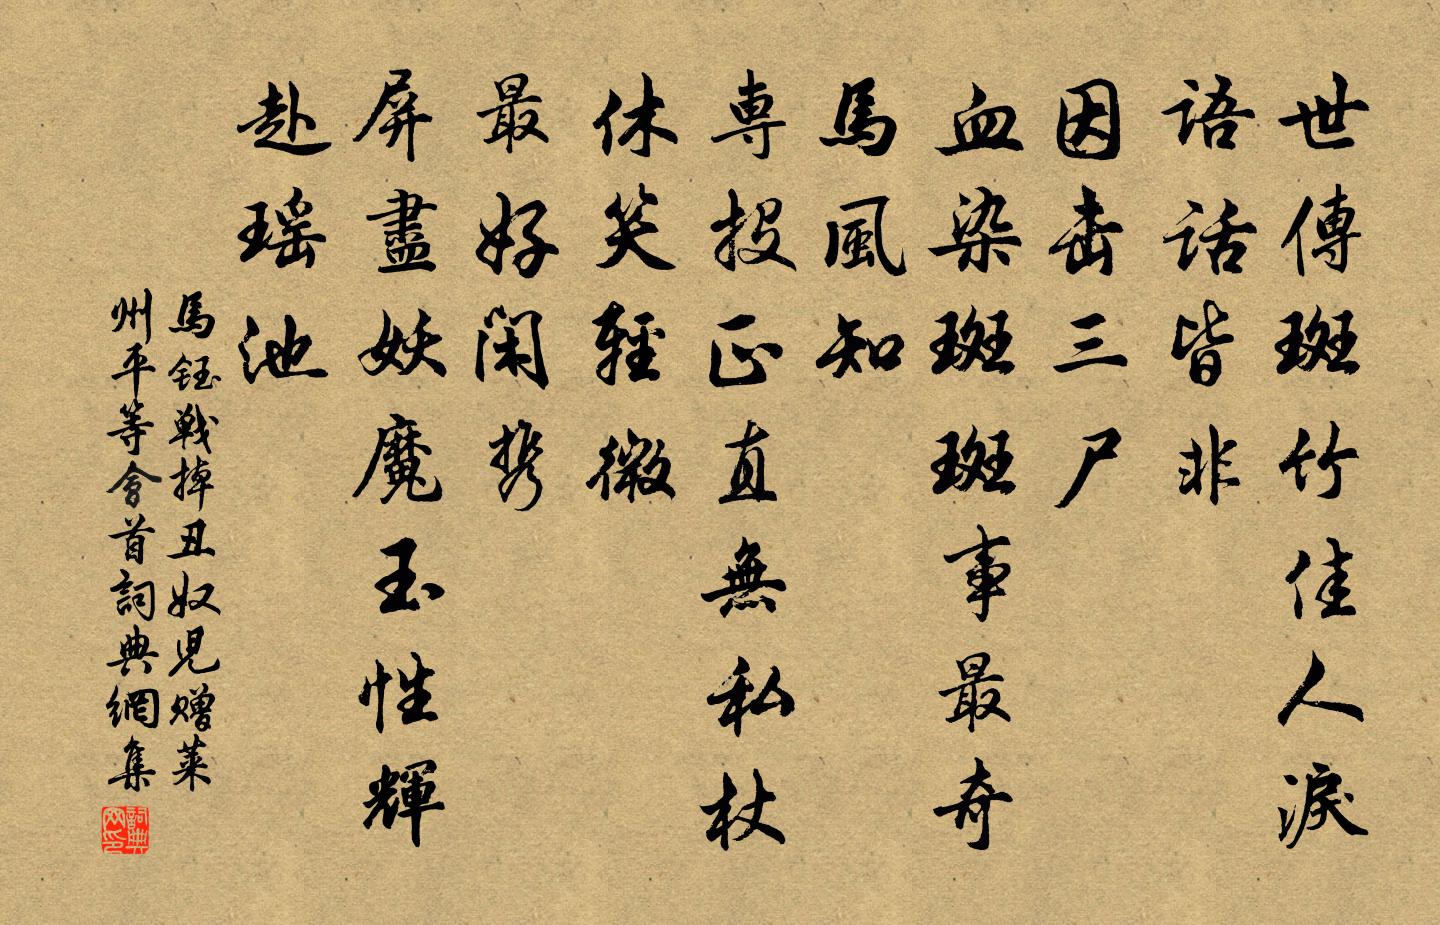 世傳斑竹佳人淚
語話皆非
因击三尸
血染斑斑事最奇
馬風知
専投正直無私杖
休笑輕微
最好閑携
屏盡妖魔玉性輝
赴瑶池
馬鈺戦掉丑奴児赠莱
州平等會首詞典網集
詞典
网印